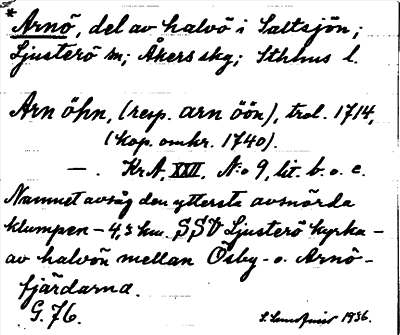 * Arnö, del av halvö i Saltsjön;
Ljusterö sn; Åkers skg; Sthlms l.
Arn öhn, (resp. arn öön), trol. 1714,
(kop. omkr. 1740).
— . Kr.A, XXII, N:o 9, lit. b. o. c.
Namnet avsåg den yttersta avsnörda
klumpen – 4,3 km. SSV Ljusterö kyrka –
av halvön mellan Ösby- o. Arnö-
fjärdarna.
G. 76.
1936.